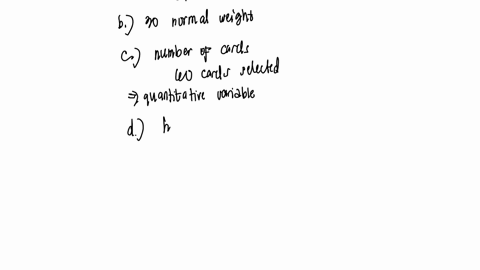 b.) 30 normal weight
c.) number of cards
60 cards selected
⇒ quantitative variable
d.) h